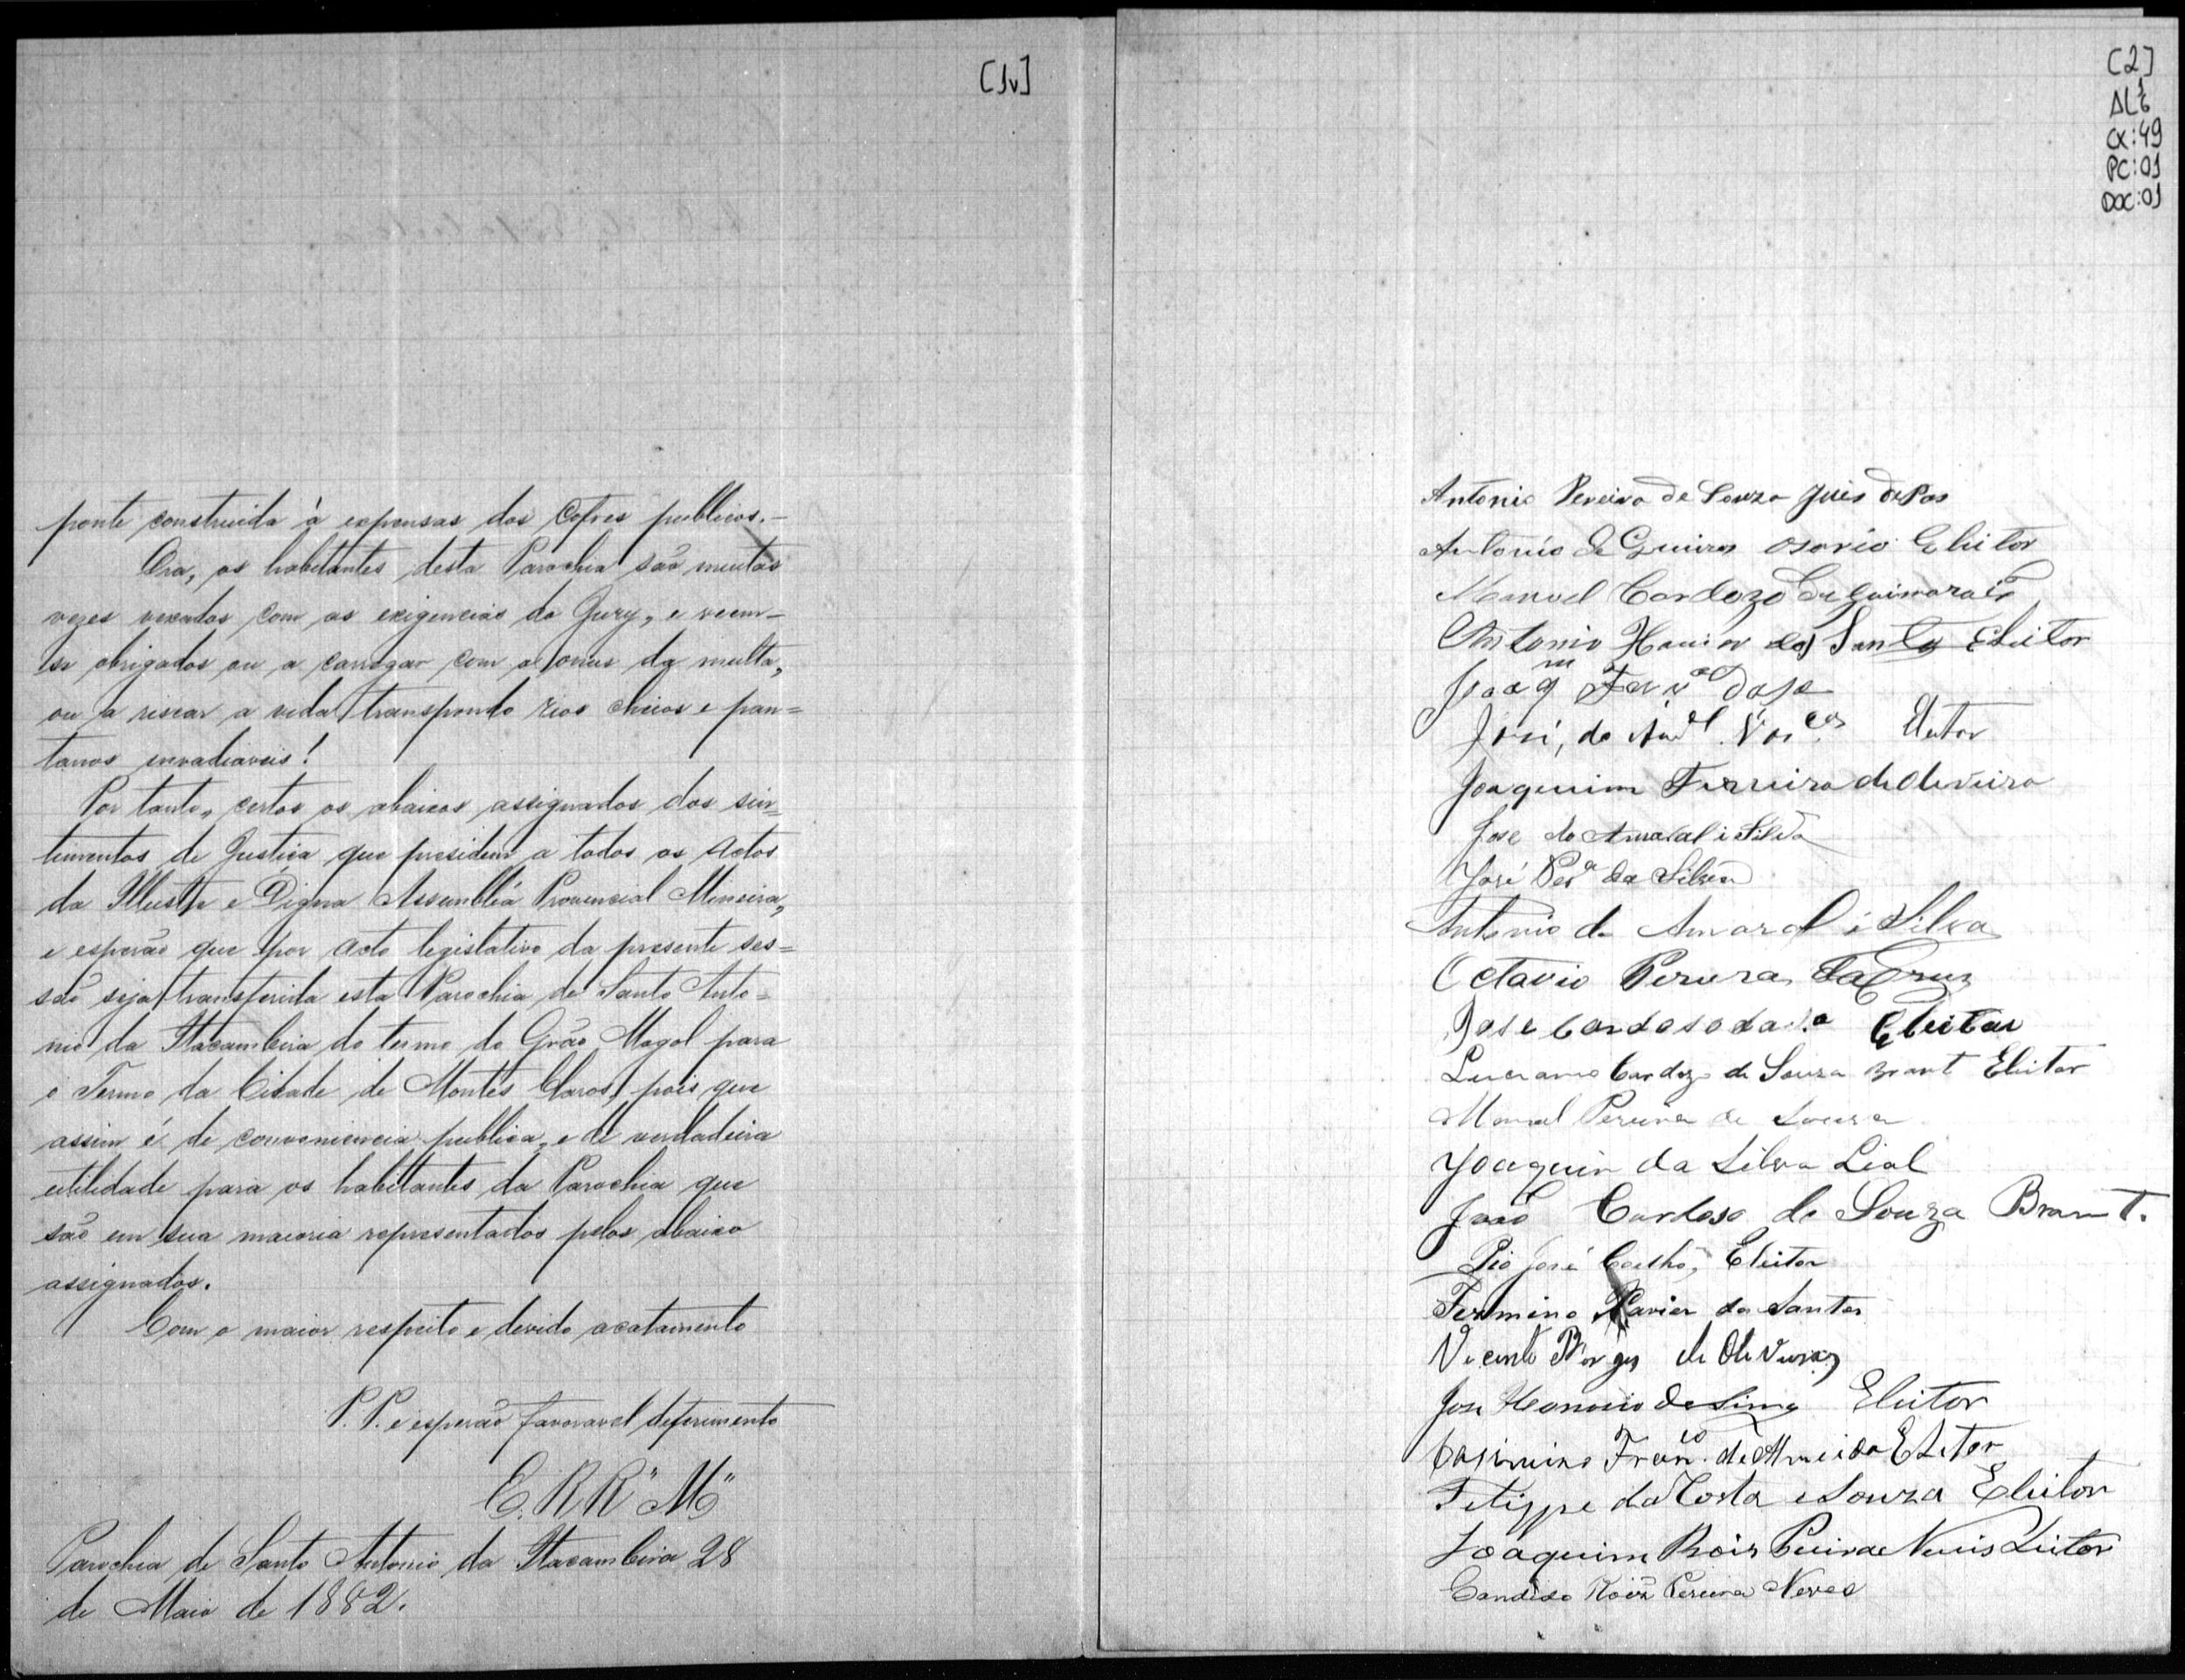 [1v]
ponte construida à expensas dos Cofres publicos.-
Ora, os habitantes desta Parochia são muitas
vezes vexados com as exigencias do Jury, e veem-
se obrigados ou a carregar com o onus da multa,
ou a riscar a vida transpondo rios cheios e pan=
tanos invadiaveis!
Por tanto, certos os abaixos assignados dos sin=
timentos de Justiça que presidem a todos os Actos
da Illustre e Digna Assembléa Provincial Mineira,
e esperão que por acto legislativo da presente ses=
são seja transferida esta Parochia de Santo Anto=
nio da Itacambira do termo do Grão Mogol para
o Termo da Cidade de Montes Claros, pois que
assim é de conveniencia publica, e de verdadeira
utilidade para os habitantes da Parochia que
são em sua maioria representados pelos abaixo
assignados.
Com o maior respeito e devido acatamento
P. P. e esperão favoravel deferimento
E. R R "Mce"
Parochia de Santo Antonio da Itacambira 28
de Maio de 1882.
[2]
AL1
CX: 49
PC: 01
DOC: 01
Antonio Pereira de Souza Juis de Pas
Antonio de Osorio Eleitor
Manoel Cardozo de Guimarais
Antonio Xavier dos Santos Eleitor
Joaqm
José, do Eleitor
Joaquim Ferreira de Oliveira
Jose do Amaral i Silva
José Pera da Silva
Antonio do Amaral i Silva
Octavio Pereira da Cruz
Jose Cardoso da Eleitor
Luciano Cardozo de Souza Brant Eleitor
Manoel Pereira de Souza
Joaquim da Silva Lial
João Cardoso de Souza Brant.
Pio José Coelho, Eleitor
Fermino Xavier dos Santos
Vicente Borges de Oliveira
Jose Honorio de Lima Eleitor
Casimiro Franco de Almeida Eleitor
Felippe da Costa e Souza Eleitor
Joaquim Rois Pereira Neves Eleitor
Candido Rois Pereira Neves